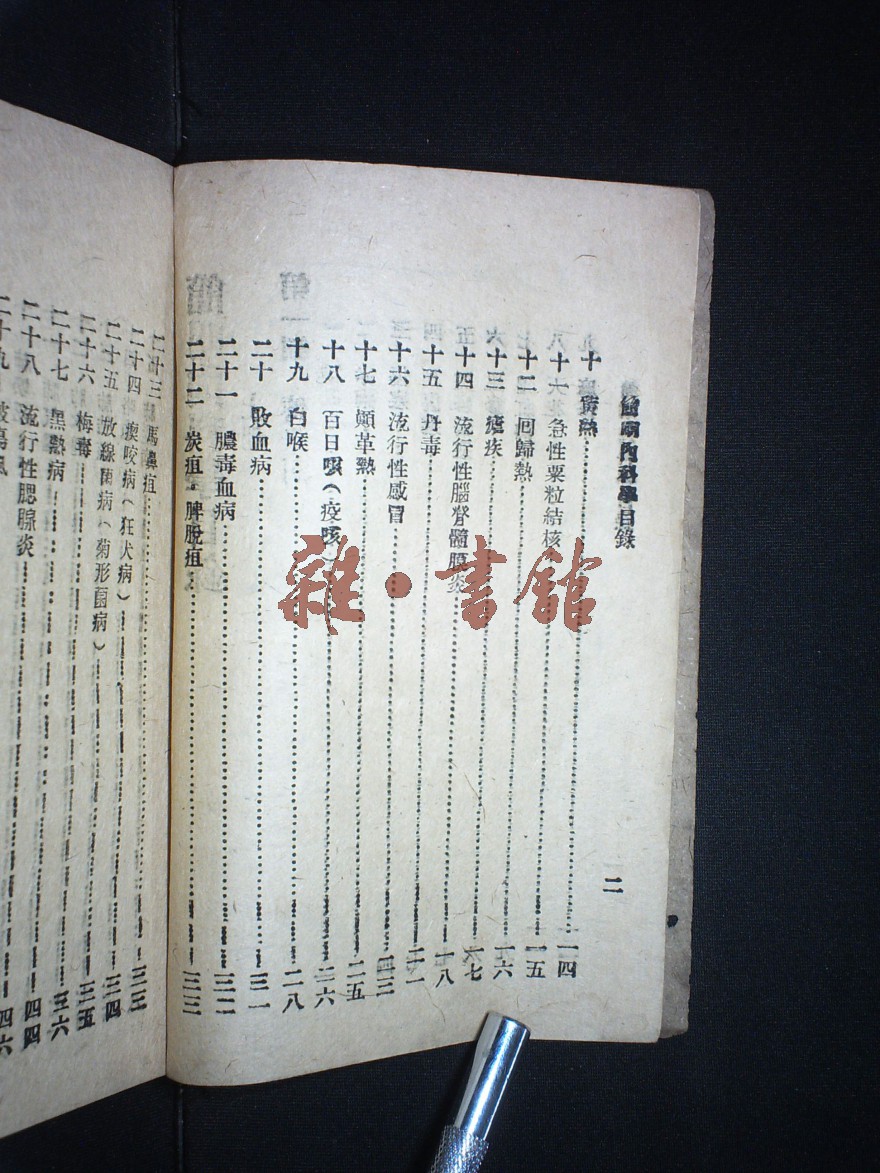 簡明內科學目錄
二
十 黃熱……一四
十一 急性粟粒結核……一五
十二 回歸熱……一六
十三 瘧疾……一七
十四 流行性腦脊髓膜炎……一八
十五 丹毒……二一
十六 流行性感冒……二三
十七 顛革熱……二五
十八 百日咳(疫咳)……二六
十九 白喉……二八
二十 敗血病……三一
二十一 膿毒血病……三二
二十二 炭疽·脾脫疽……三三
二十三 馬鼻疽……三三
二十四 瘈咬病(狂犬病)……三四
二十五 放線菌病(菊形菌病)……三五
二十六 梅毒……三六
二十七 黑熱病……四四
二十八 流行性腮腺炎……四六
二十九 破傷風
雜·書館